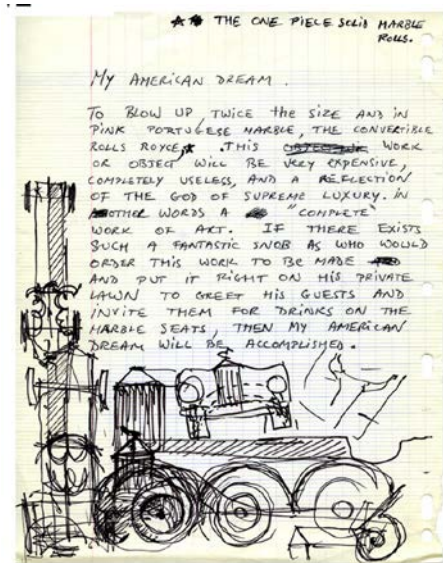 THE ONE PIECE SOLID MARBLE
ROLLS.
MY AMERICAN DREAM.
TO BLOW UP, TWICE THE SIZE AND IN
PINK PORTUGESE MARBLE, THE CONVERTIBLE
ROLLS ROYCE, THIS WORK
OR OBJECT, WILL BE VERY EXPENSIVE,
COMPLETELY USELESS, AND A REFLECTION
OF THE GOD OF SUPREME LUXURY. IN
OTHER WORDS A "COMPLETE"
WORK OF ART. IF THERE EXISTS
SUCH A FANTASTIC SNOB AS WHO WOULD
ORDER THIS WORK TO BE MADE
AND PUT IT RIGHT ON HIS PRIVATE
LAWN TO GREET HIS GUESTS AND
INVITE THEM FOR DRINKS ON THE
MARBLE SEATS, THEN MY AMERICAN
DREAM WILL BE ACCOMPLISHED.